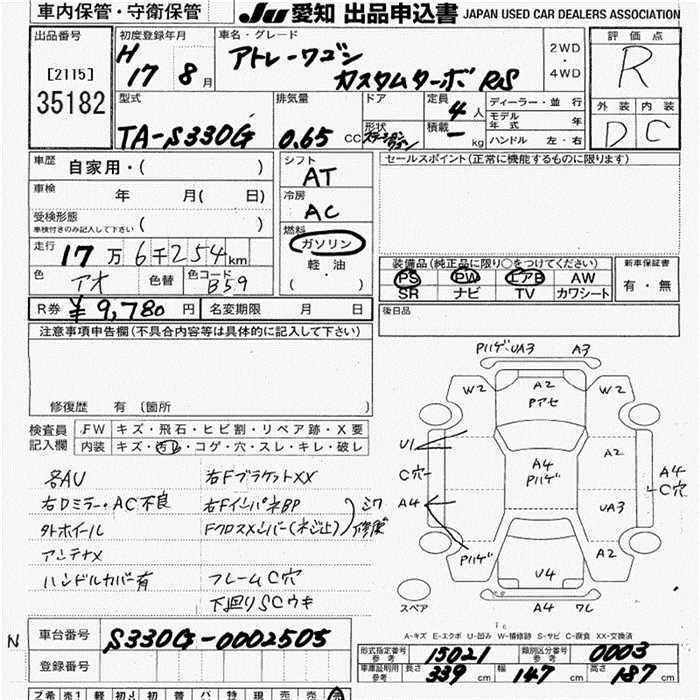 車内保管・守衛保管
JU 愛知 出品申込書 JAPAN USED CAR DEALERS ASSOCIATION
出品番号
[2115]
35182
初度登録年月
H 17 8月
車名・グレード
アトレーワゴン
カスタムターボ RS
2WD
・
4WD
評価点
R
外装 内装
D C
型式
TA-S330G
排気量
0.65 cc
ドア
形状
ステーションワゴン
定員 4人
積載 ー kg
ディーラー・並行
モデル年式 年
ハンドル 左・右
車歴 自家用・( )
車検 年 月( 日)
受検形態
車検付きのみ記入して下さい ( )
走行 17万6千254km
色 アオ 色替 色コード B59
R券 ¥9,780円 名変期限 月 日
シフト
AT
冷房
AC
燃料
ガソリン
軽・油
( )
セールスポイント(正常に機能するものに限ります)
装備品(純正品に限り○をつけてください)
PS PW エアB AW
SR ナビ TV カワシート
新車保証書
有・無
後日品
注意事項申告欄(不具合内容等は具体的に記入して下さい)
修復歴 有 〔箇所 〕
検査員記入欄
FW キズ・飛石・ヒビ割・リペア跡・X要
内装 キズ・汚れ・コゲ・穴・スレ・キレ・破レ
各AU
右Dミラー・AC不良
外ホイール
アンテナX
ハンドルカバー有
右FブラケットXX
右FインパネBP
Fクロスメンバー(ネジ止)
シワ
修復
フレームC穴
下廻りSCウキ
Pハゲ・UA3 A3
W2 A2 W2
Pアセ
U1
A2
C穴
A4
Pハゲ
A4
C穴
A4
UA3
Pハゲ
A2
U4
スペア
A4 ワレ
A-キズ E-エクボ U-凹み W-補修跡 S-サビ C-腐食 XX-交換済
N
車台番号 S330G-0002505
登録番号
形式指定番号 参考 15021
類別区分番号 参考 0003
車庫証明用 参考 長さ 339cm 幅 147cm 高さ 187cm